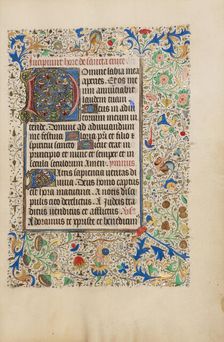 Incipiunt hore de sancta cruce
Domine labia mea
aperies. Et os me
um annunciabit
laudem tuam
Deus in adiu
torium meum in
tende. Domine ad adiuuandum
me festina. Gloria patri et filio et
spiritui sancto. Sicut erat in
principio et nunc et semper et in
secula seculorum amen.
Patris sapiencia ueritas di
uina. Deus homo captus
est hora matutina. A notis disci
pulis cito derelictus. A iudeis tra
ditus uenditus et afflictus.
Adoramus te xpriste et benedicim